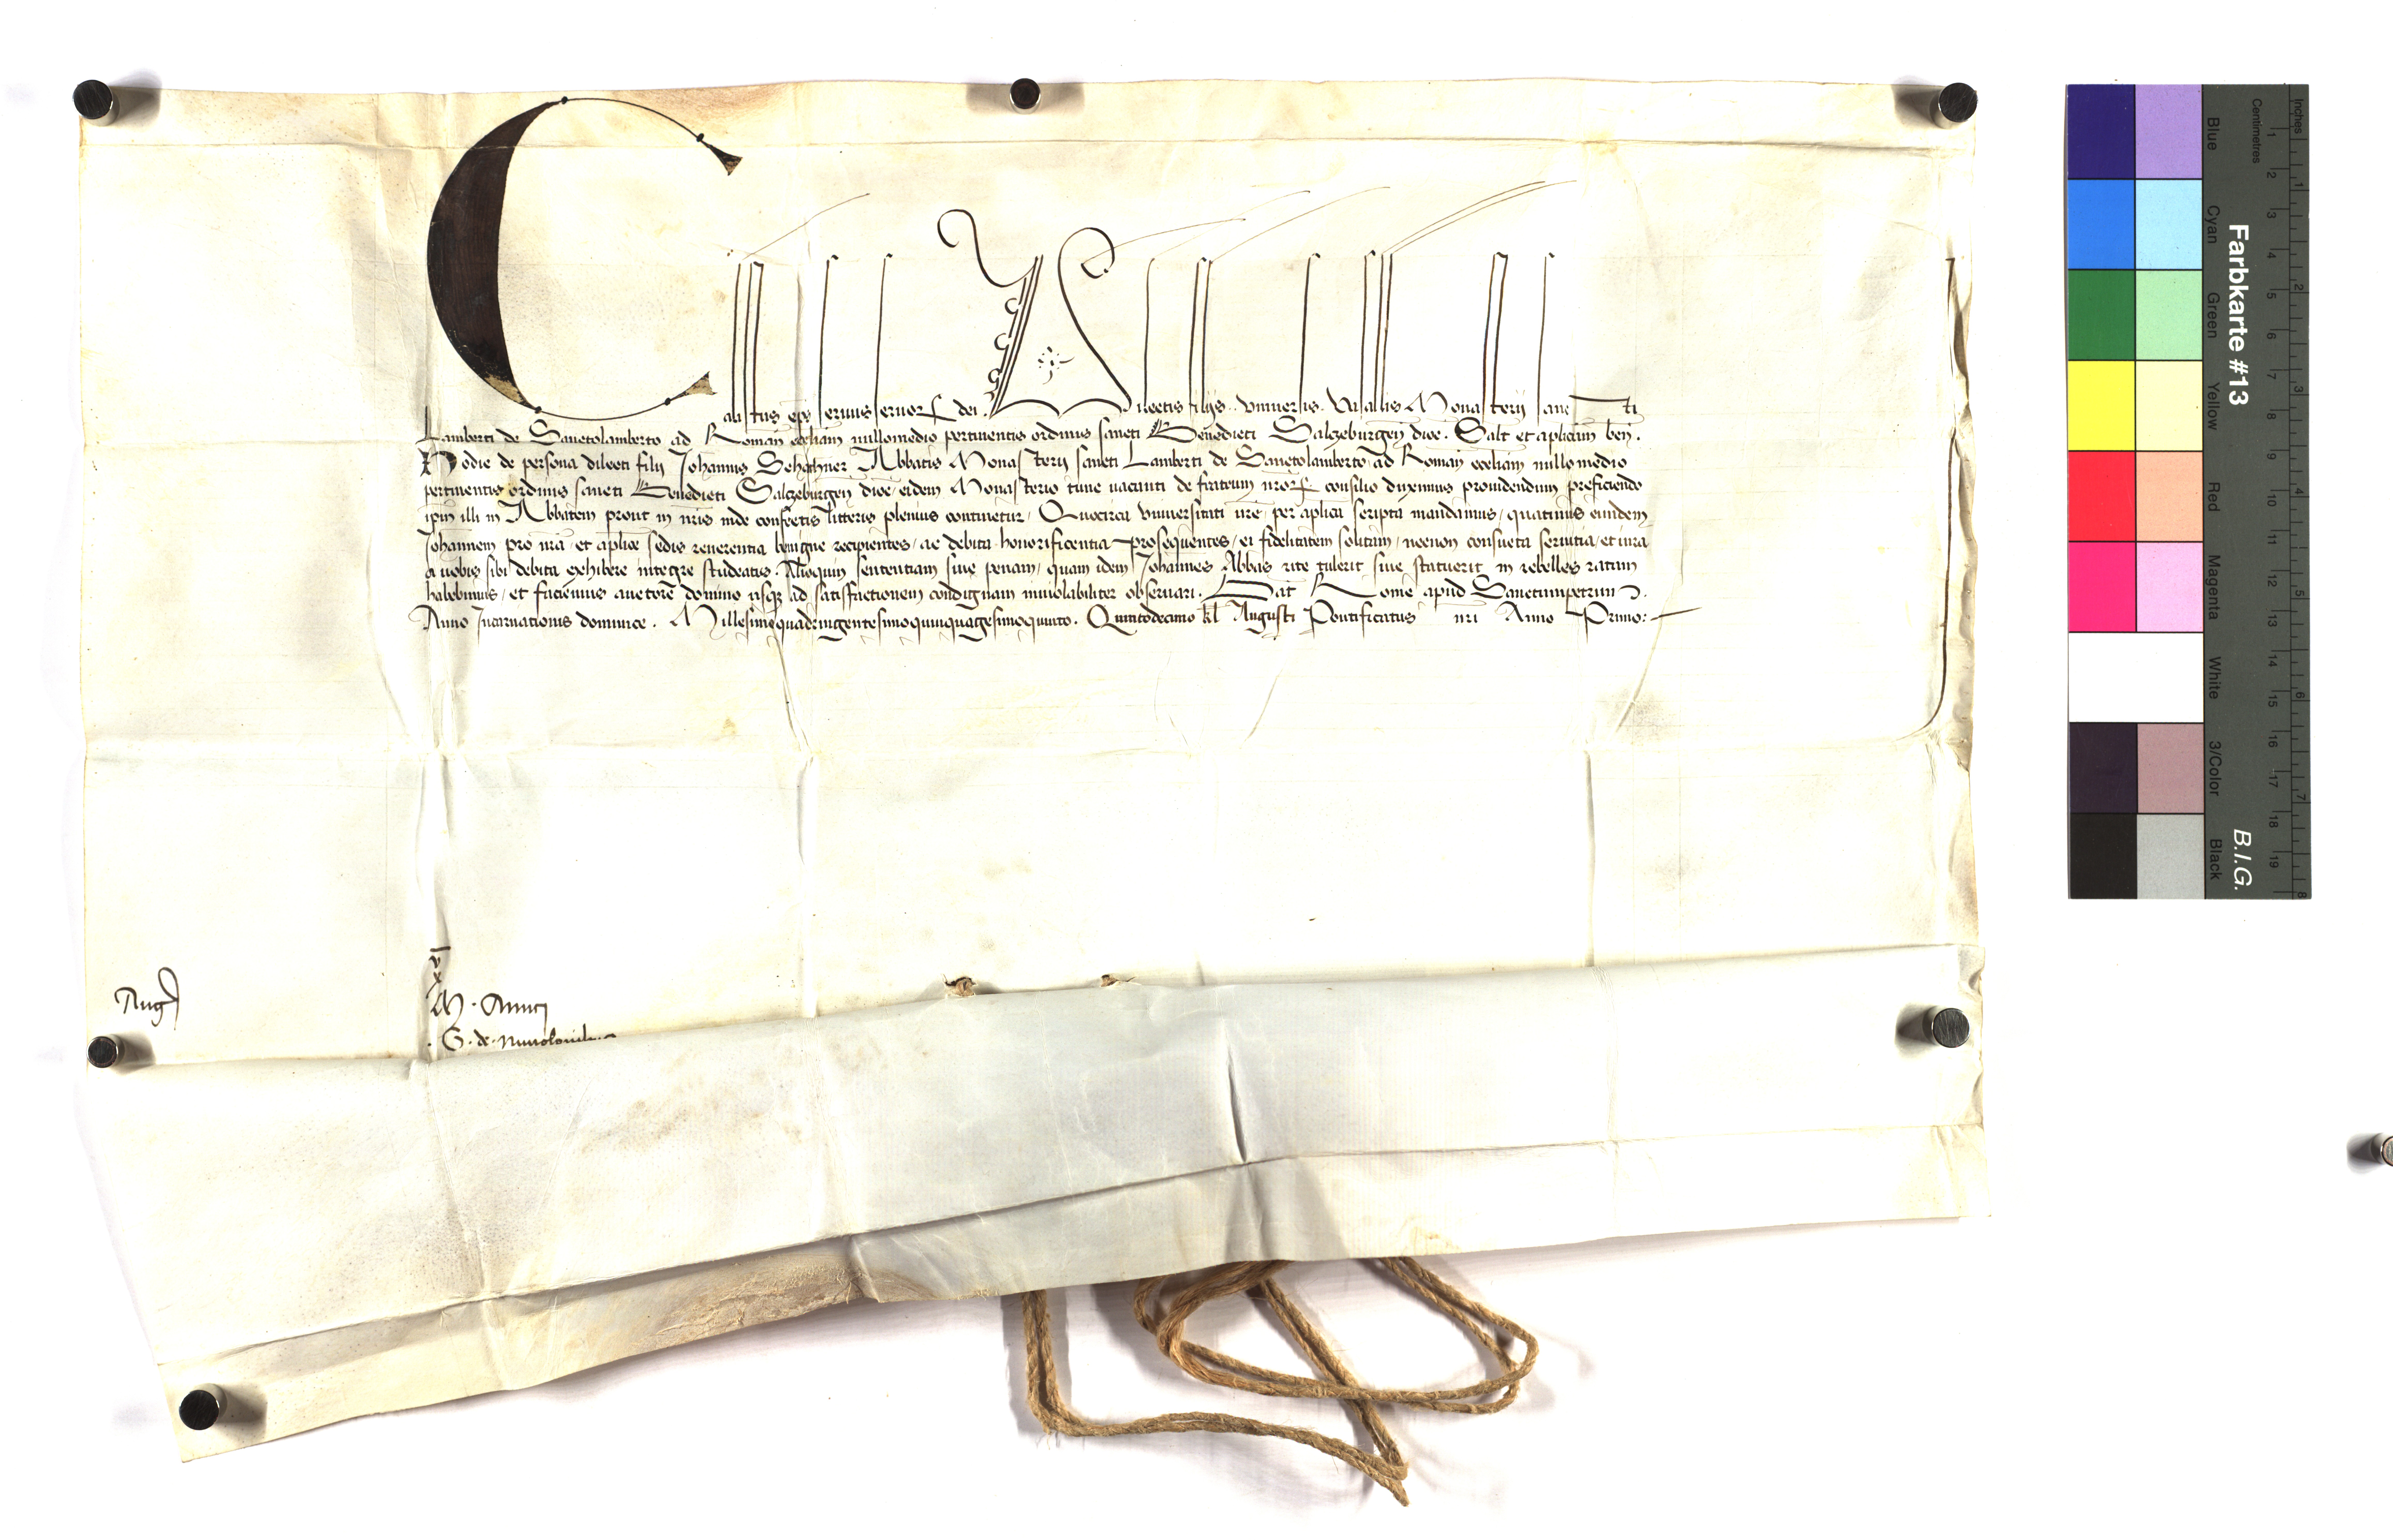 Calistus ep̄s seruus seruoꝝ dei. Dilectis filijs. vniuersis. Vasallis Monasterij sancti
Lamberti de Sanctolamberto ad Romanā ecclīam nullomedio pertinentis ordinis sancti Benedicti Salczeburgeñ dioc̄. Salt̄ et aplicam̄ beñ.
Hodie de persona dilecti filij Johannis Schachner Abbatis Monasterij sancti Lamberti de Sanctolamberto ad Romanā ecclīam nullo medio
pertinentis ordinis sancti Benedicti Salczeburgeñ dioc̄ eidem Monasterio tunc vacanti de fratrum nr̄oꝝ consilio duximus prouidendum preficiendo
ip̄m illi in Abbatem prout in nr̄is inde confectis litteris plenius continet̄ur. Quocirca vniuersitati vr̄e per aplīca scripta mandamus, quatinus eundem
Johannem pro nr̄a et aplīce sedis reuerentia benigne recipientes, ac debita honorificentia prosequentes, ei fidelitatem solitam, necnon consueta seruitia, et iura
a uobis sibi debita exhibere integre studeatis. Alioquin sententiam siue penam, quam idem Johannes Abbas rite tulerit siue statuerit in rebelles ratam
habebimus, et faciemus auctore domino usqꝫ ad satisfactionem condignam inuiolabiliter obseruari. Dat̄ Rome apud Sanctumpetrum
Anno Incarnationis dominice. Millesimoquadringentesimoquinquagesimoquinto. Quintodecimo kl̄ Augusti Pontificatus nr̄i Anno Primo:
v
x
Aug
M. Amici
G. de
Farbkarte #13
B.I.G.
Inches
Centimetres
1 2 3 4 5 6 7 8 9 10 11 12 13 14 15 16 17 18 19
1 2 3 4 5 6 7 8
Blue Cyan Green Yellow Red Magenta White 3/Color Black